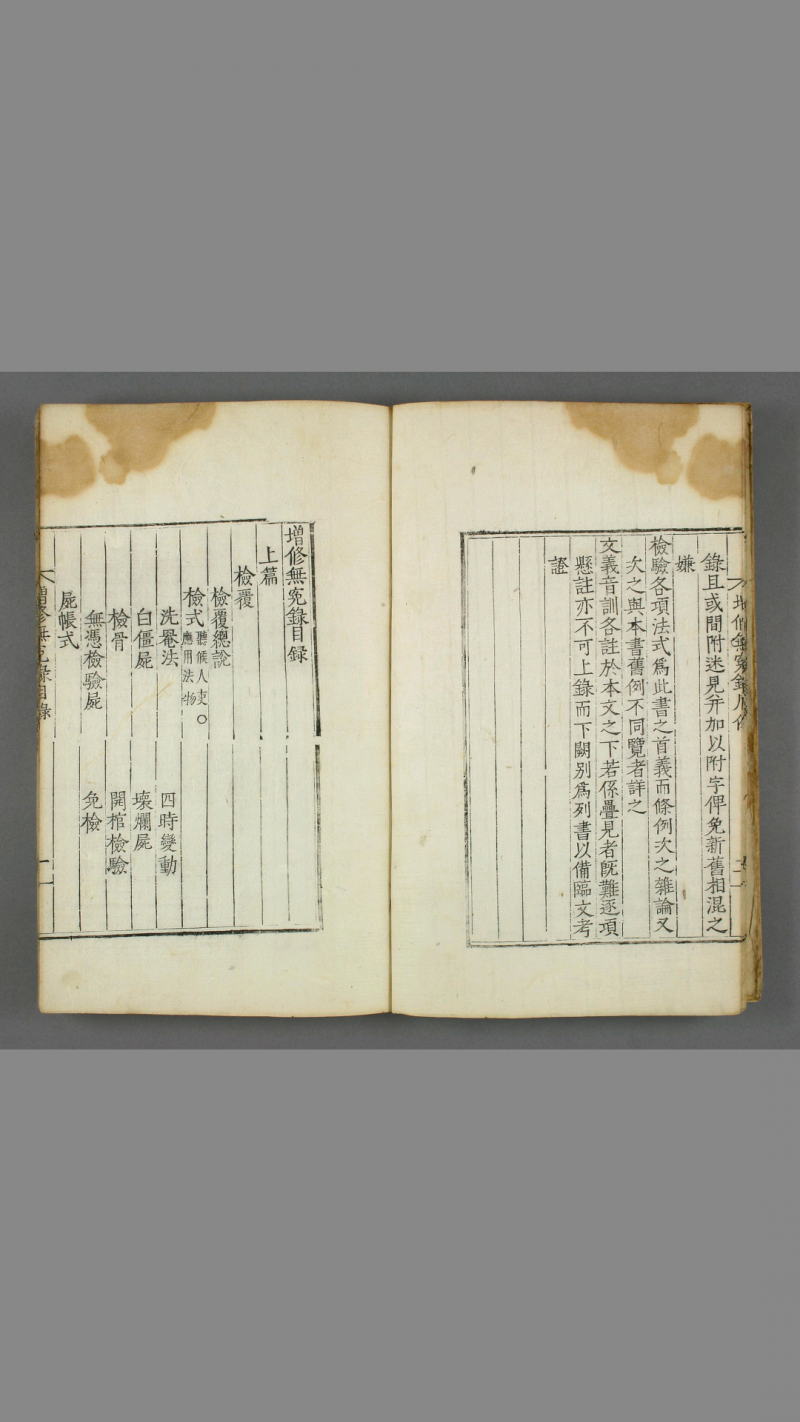 錄且或間附迷見幷加以附字俾免新舊相混之
嫌
檢驗各項法式爲此書之首義而條例次之雜論又
次之與本書舊例不同覽者詳之
文義音訓各註於本文之下若係疊見者旣難逐項
懸註亦不可上錄而下闕別爲列書以備臨文考
證
增修無冤錄目錄
上篇
檢覆
檢覆總說
檢式 聽候人吏○
應用法物
洗罨法 四時變動
白僵屍 壞爛屍
檢骨 開棺檢驗
無憑檢驗屍 免檢
屍帳式
增修無冤錄目錄